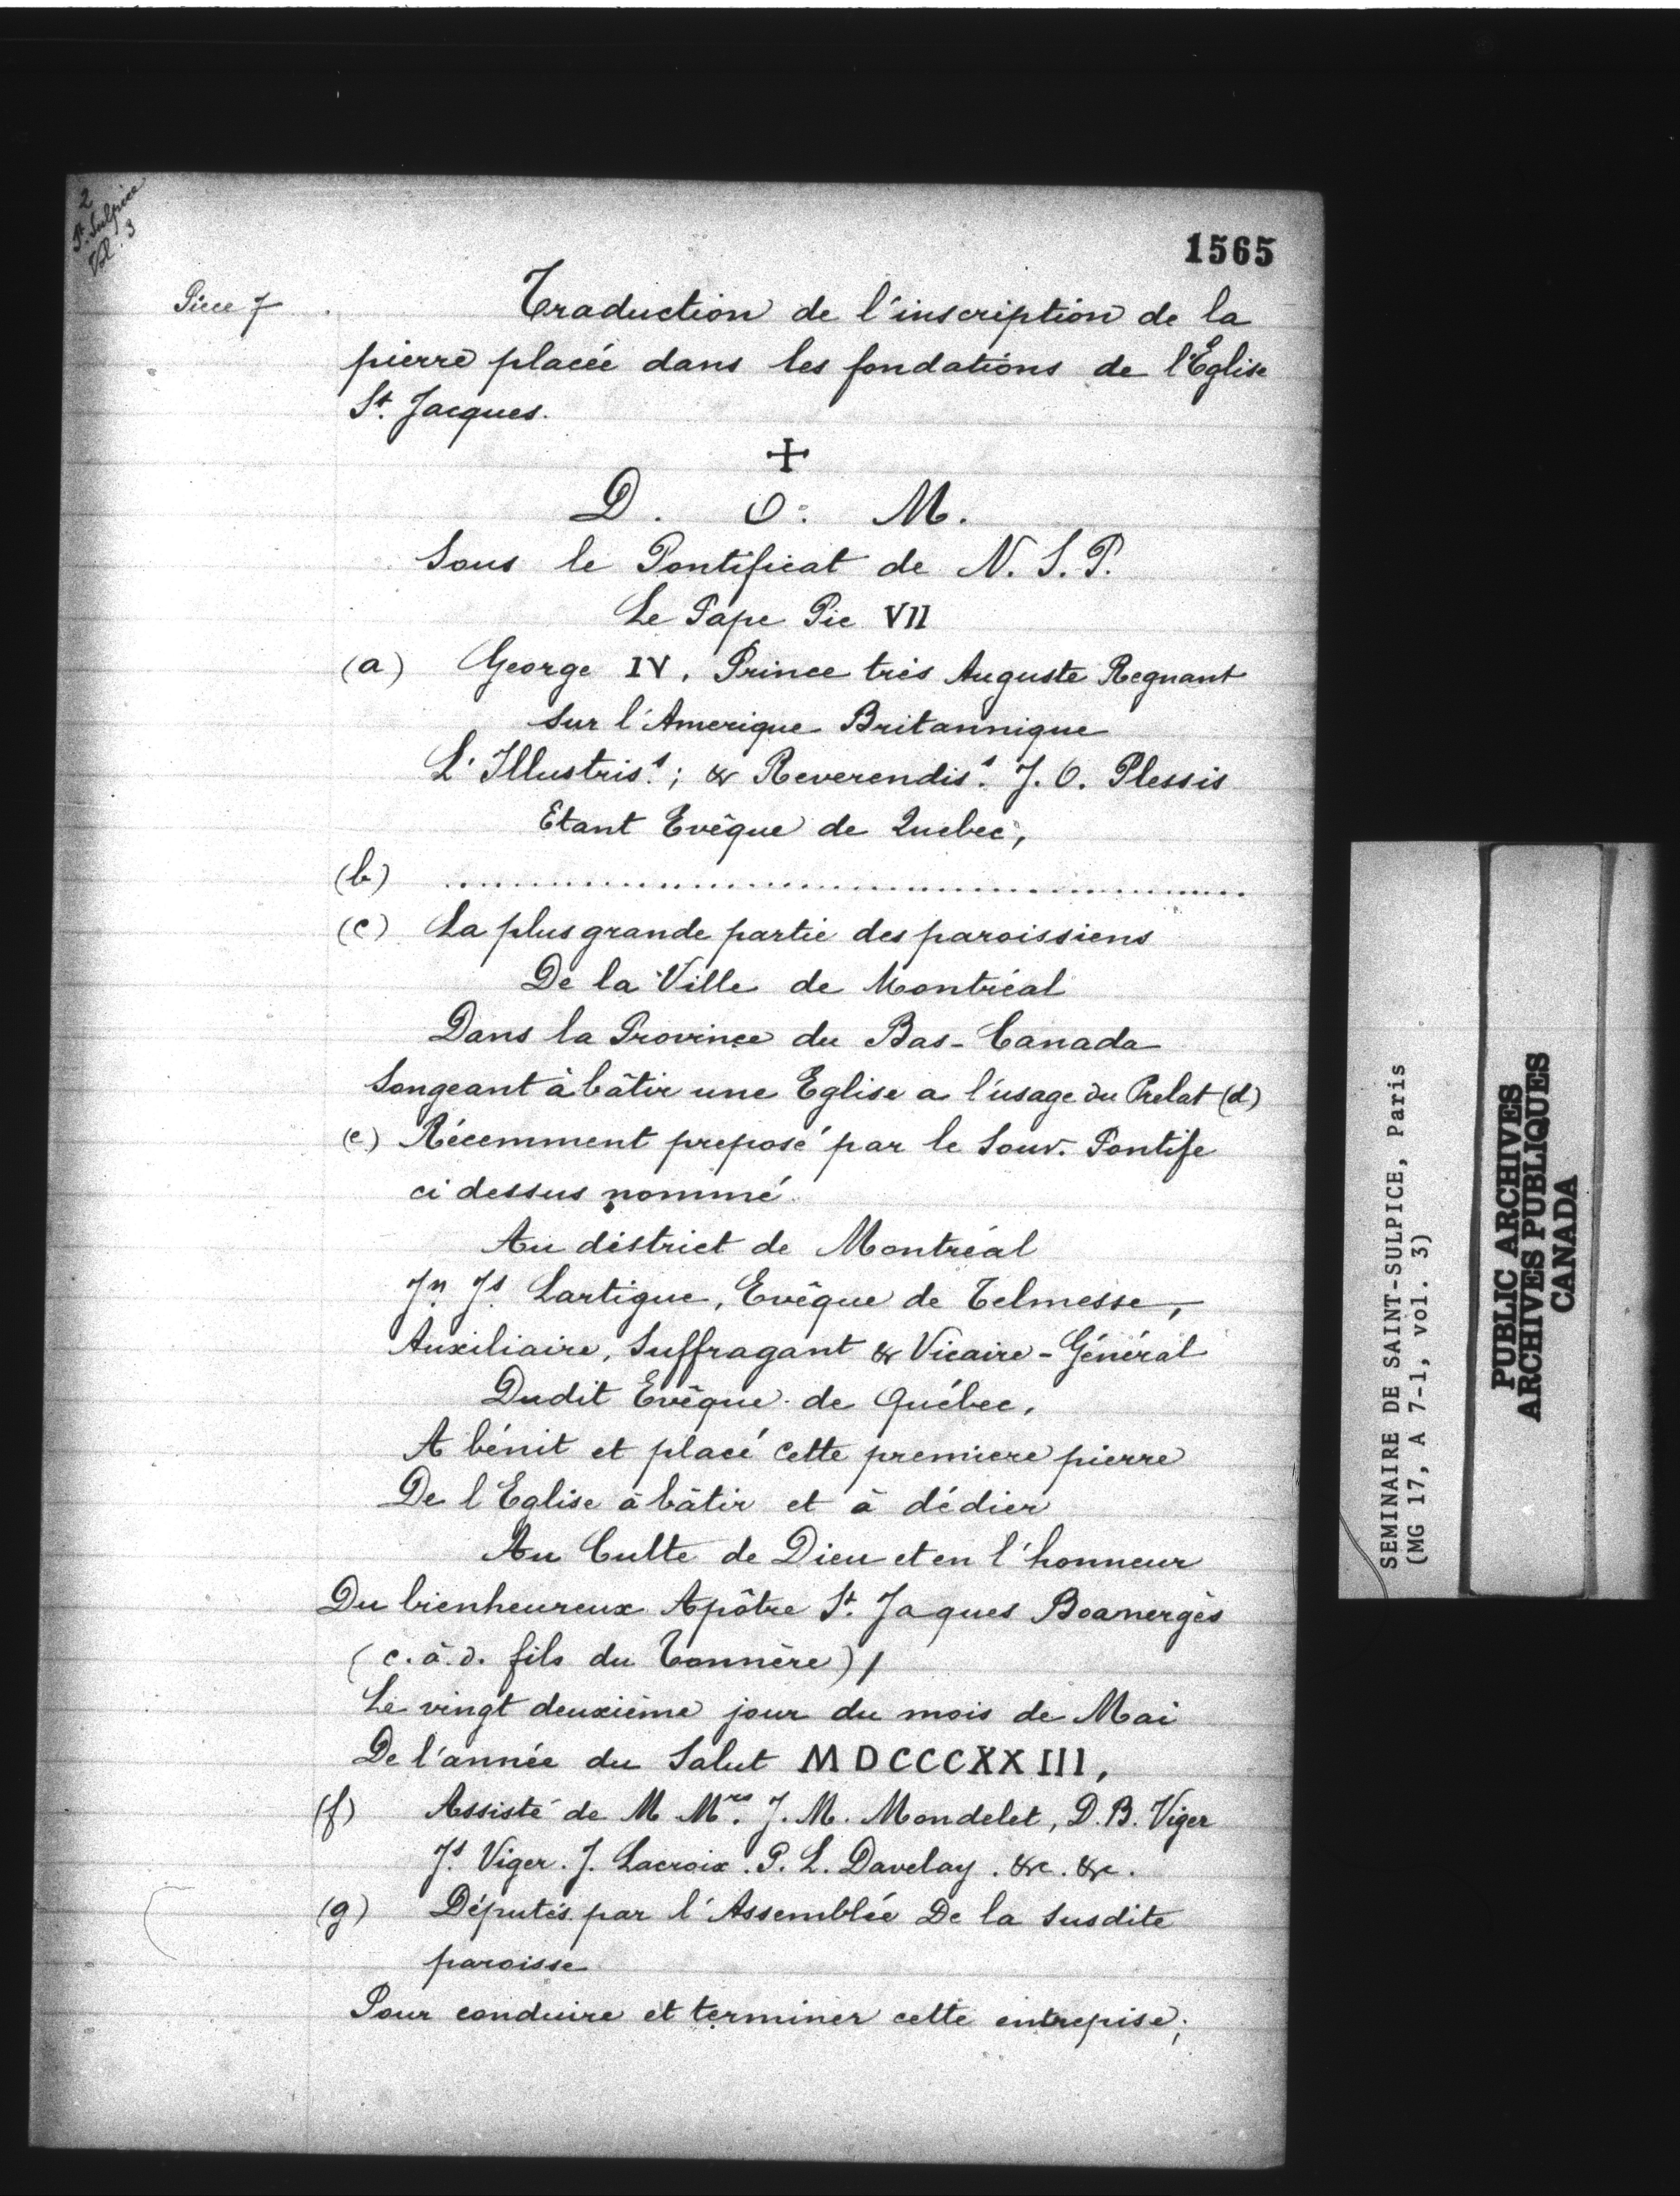 2
St. Sulpice
Vol. 3
1565
Piece 7
Traduction de l'inscription de la
pierre placée dans les fondations de l'Eglise
St. Jacques.
+
D. O. M.
Sous le Pontificat de N. S. P.
Le Pape Pie VII
(a) George IV, Prince très Auguste Regnant
Sur l'Amerique Britannique
L'Illustris.s; & Reverendis.s J. O. Plessis
Etant Evêque de Quebec,
(b) ..................................................
(c) La plus grande partie des paroissiens
De la Ville de Montréal
Dans la Province du Bas-Canada
Songeant à bâtir une Eglise a l'usage du Prelat (d)
(e) Récemment preposé par le Souv. Pontife
ci dessus nommé.
Au district de Montréal
Jn Js Lartigue, Evêque de Telmesse,
Auxiliaire, Suffragant & Vicaire-Général
Dudit Evêque de Québec,
A bénit et placé cette premiere pierre
De l'Eglise à bâtir et à dédier
Au Culte de Dieu et en l'honneur
Du bienheureux Apôtre St. Jaques Boanergès
(c. à. d. fils du Tonnère),
Le vingt deuxième jour du mois de Mai
De l'année du Salut MDCCCXXIII,
(f) Assisté de M Mrs. J. M. Mondelet, D. B. Viger
Js. Viger. J. Lacroix. P. L. Davelay. &c. &c.
(g) Députés par l'Assemblée De la susdite
paroisse
Pour conduire et terminer cette entrepise;
SEMINAIRE DE SAINT-SULPICE, Paris
(MG 17, A 7-1, vol. 3)
PUBLIC ARCHIVES
ARCHIVES PUBLIQUES
CANADA